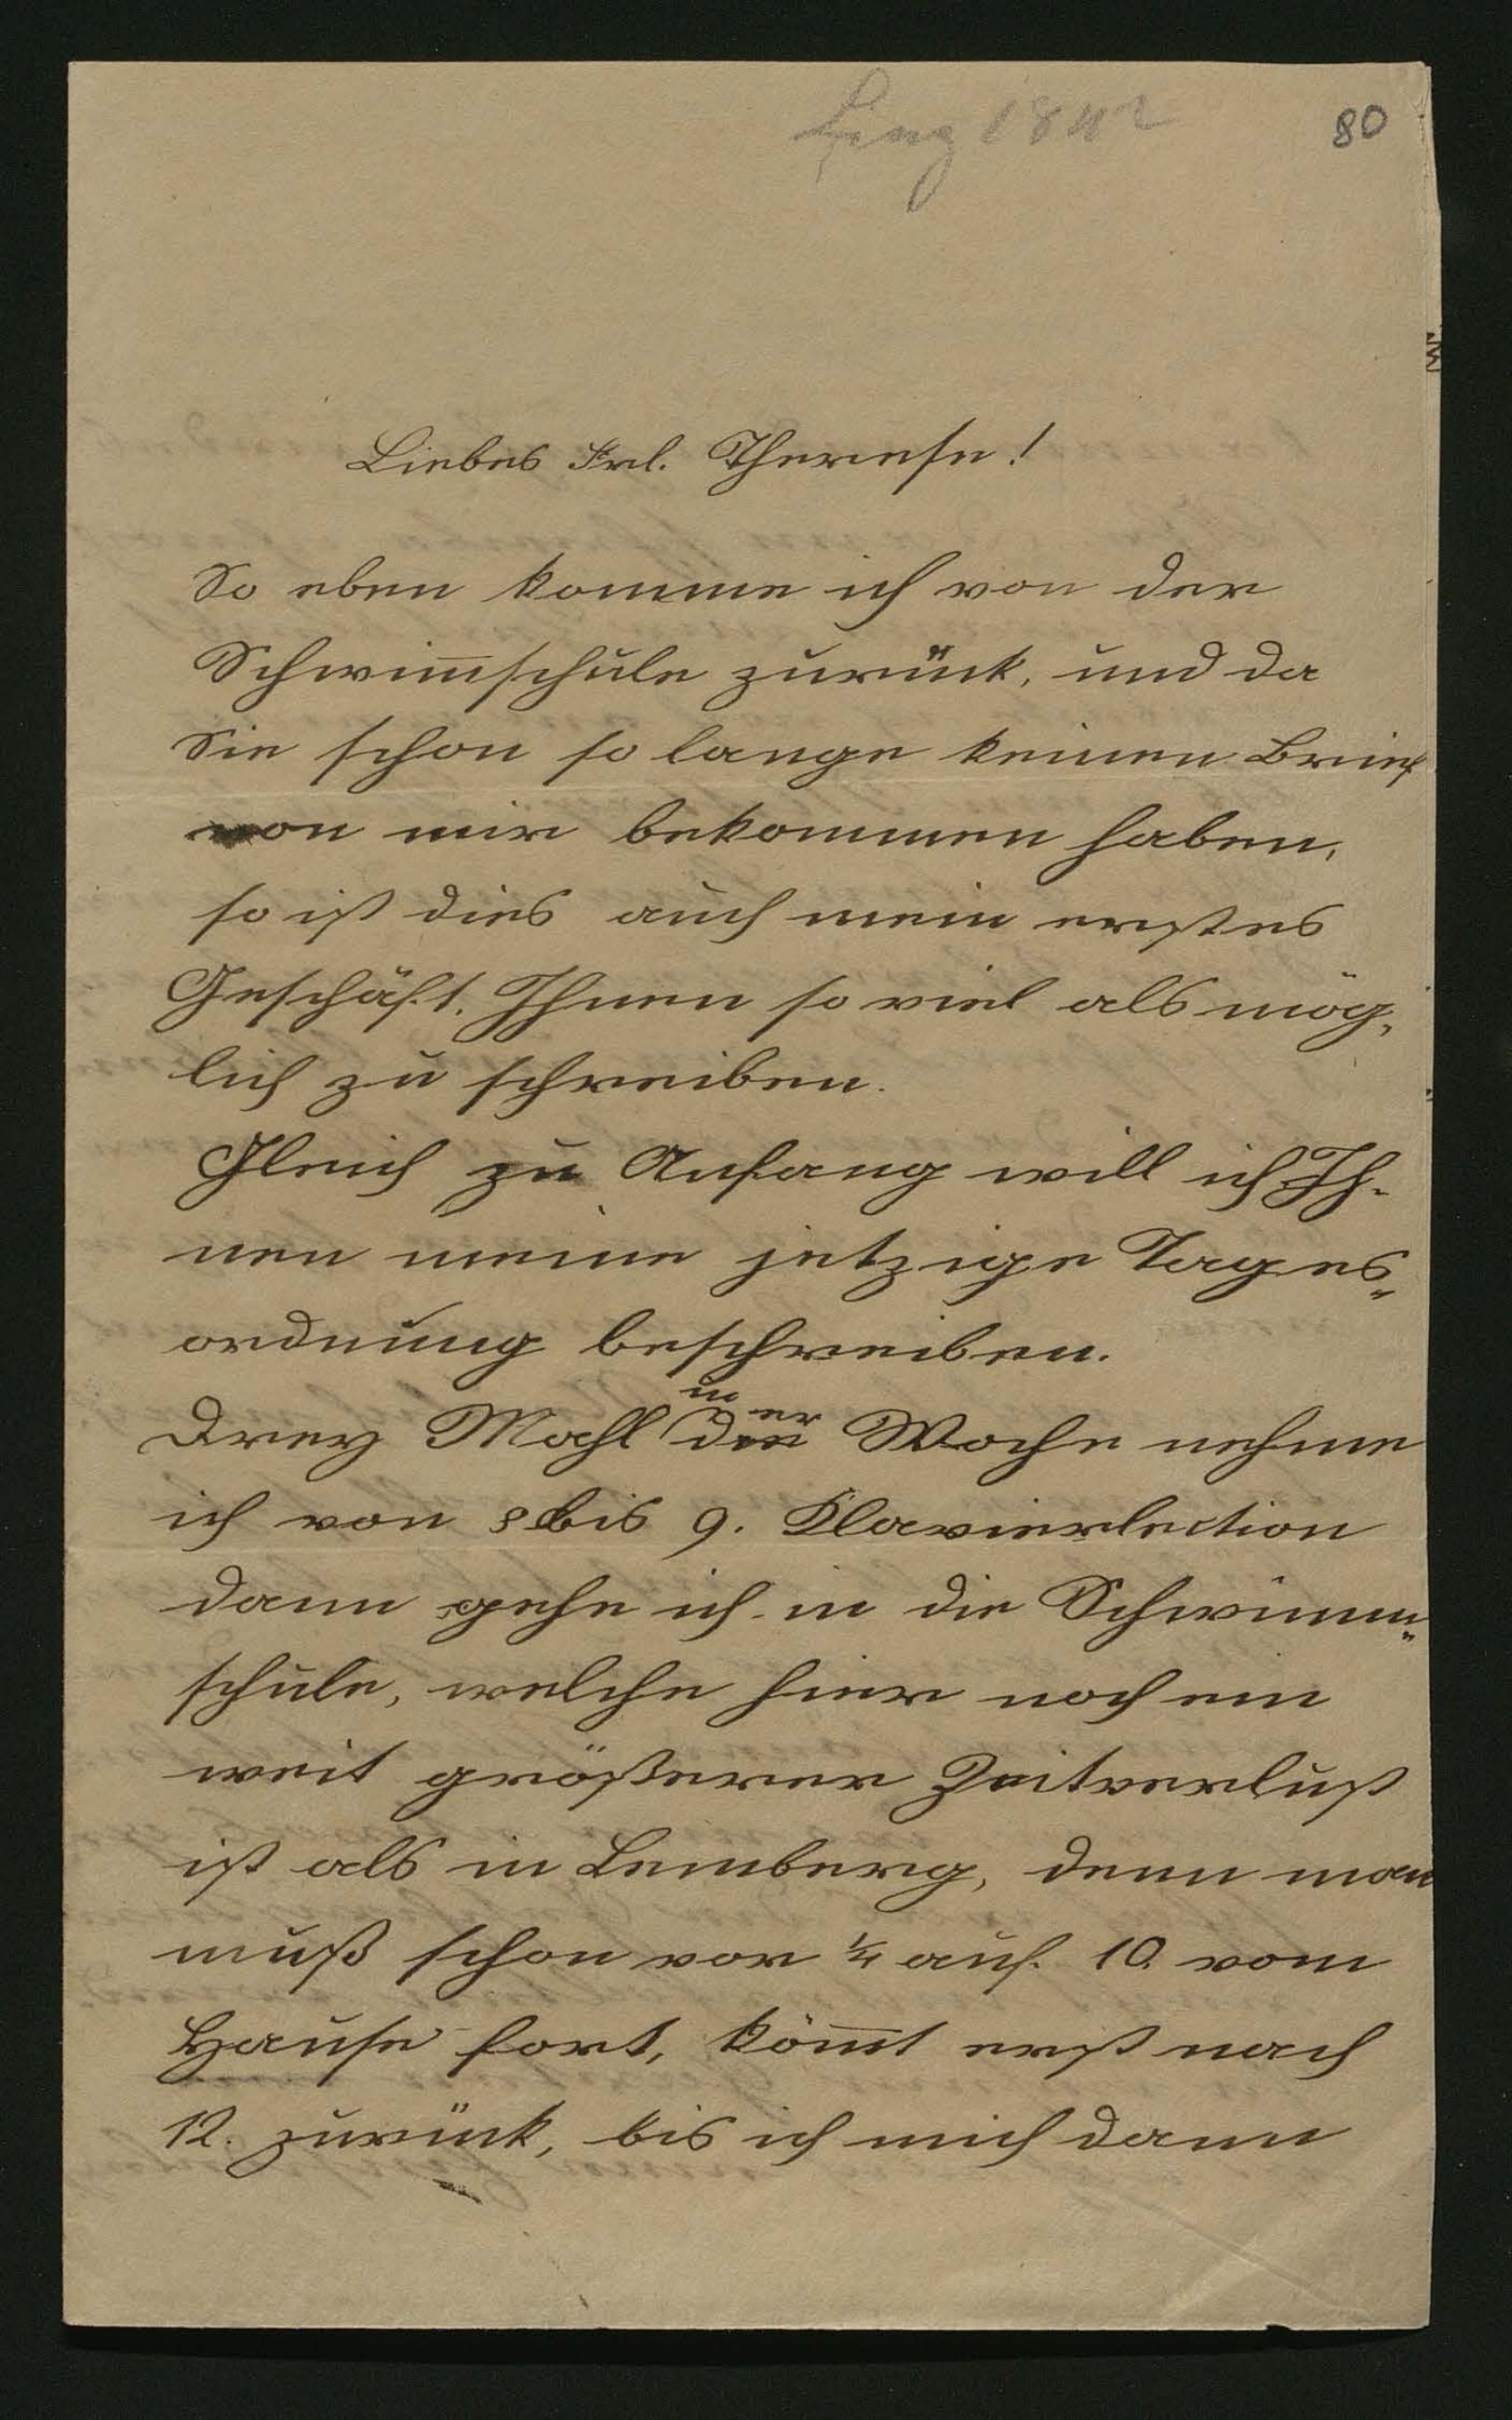 Linz 1842
80
Liebes Frl. Therese!
So eben komme ich von der
Schwim̅schule zurück, und da
Sie schon so lange keinen Brief
von mir bekommen haben,
so ist dies auch mein erstes
Geschäft, Ihnen so viel als mög,
lich zu schreiben.
Gleich zu Anfang will ich Ih-
nen meine jetzige Tages„
ordnung beschreiben.
in er
Drey Mahl die Woche nehme
ich von 8 bis 9. Klavierlection
dann gehe ich in die Schwimm„
schule, welche hier noch ein
weit größerer Zeitverlust
ist als in Lemberg, denn man
muß schon vor ¼ auf 10. vom
Hause fort, köm̅t erst nach
12. zurück, bis ich mich dann